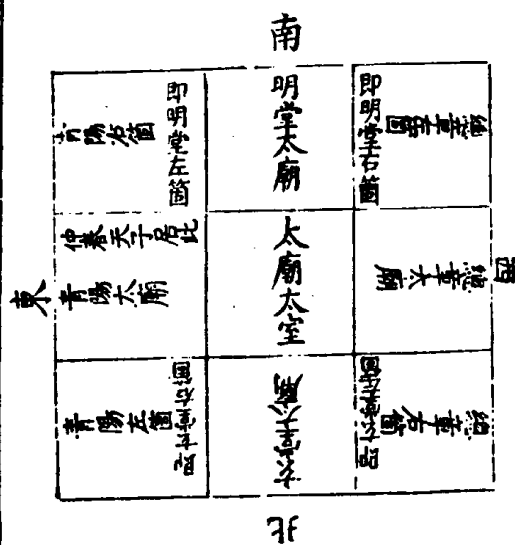 南
即明堂右箇
總章左箇
明堂太廟
即明堂左箇
青陽右箇
西
總章太廟
太廟太室
仲春天子居此
青陽太廟
東
總章右箇
即玄堂左箇
玄堂太廟
即玄堂右箇
青陽左箇
北